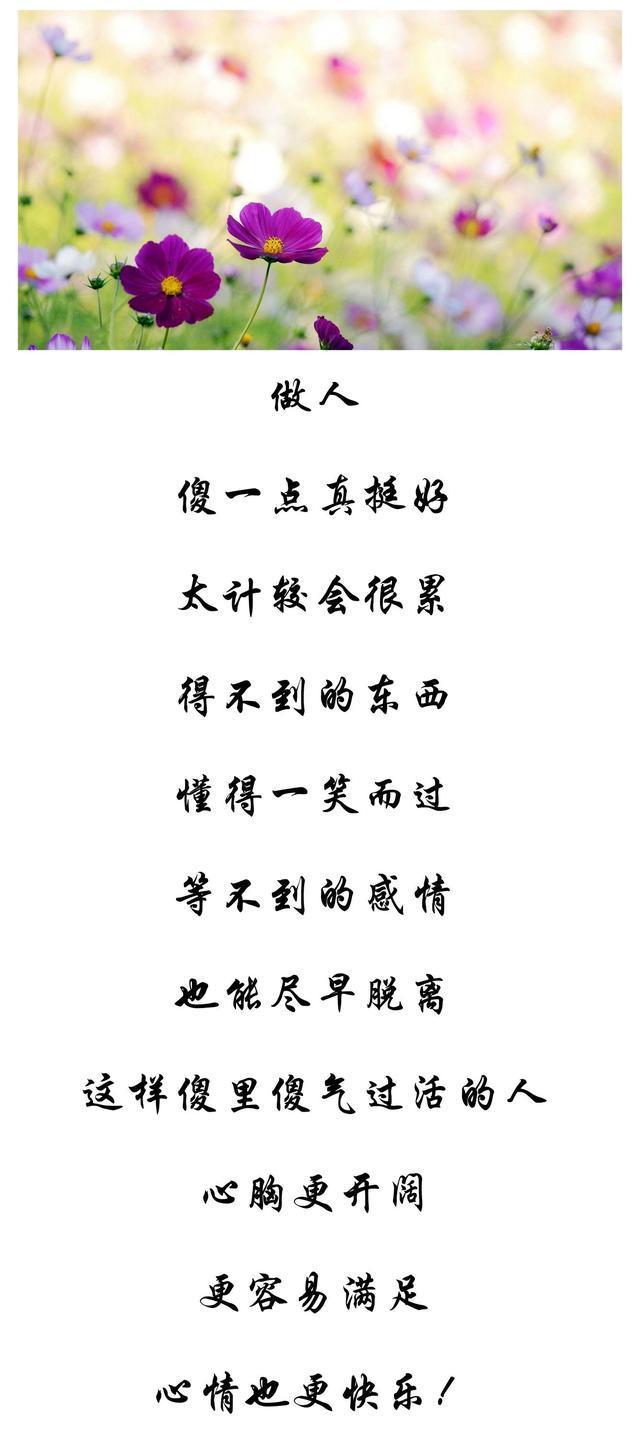 做人
傻一点真挺好
太计较会很累
得不到的东西
懂得一笑而过
等不到的感情
也能尽早脱离
这样傻里傻气过活的人
心胸更开阔
更容易满足
心情也更快乐！